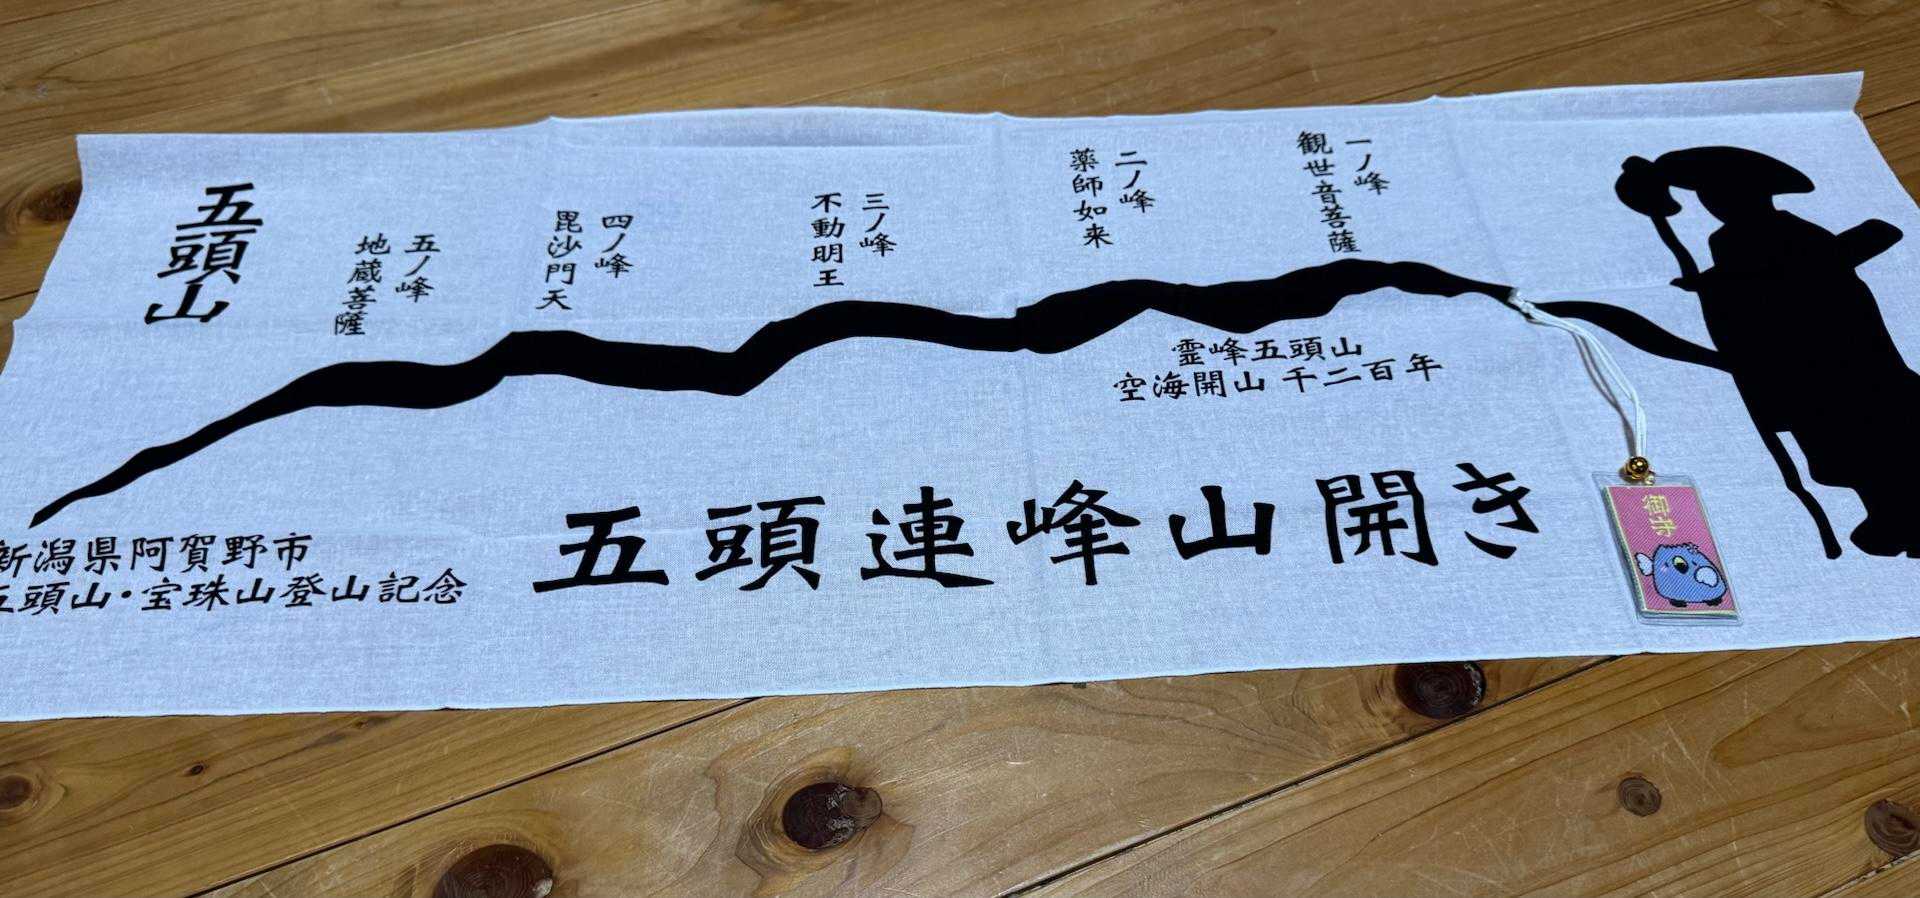 五頭山
五ノ峰
地蔵菩薩
四ノ峰
毘沙門天
三ノ峰
不動明王
二ノ峰
薬師如来
一ノ峰
観世音菩薩
霊峰五頭山
空海開山 千二百年
五頭連峰山開き
新潟県阿賀野市
五頭山・宝珠山登山記念
御守